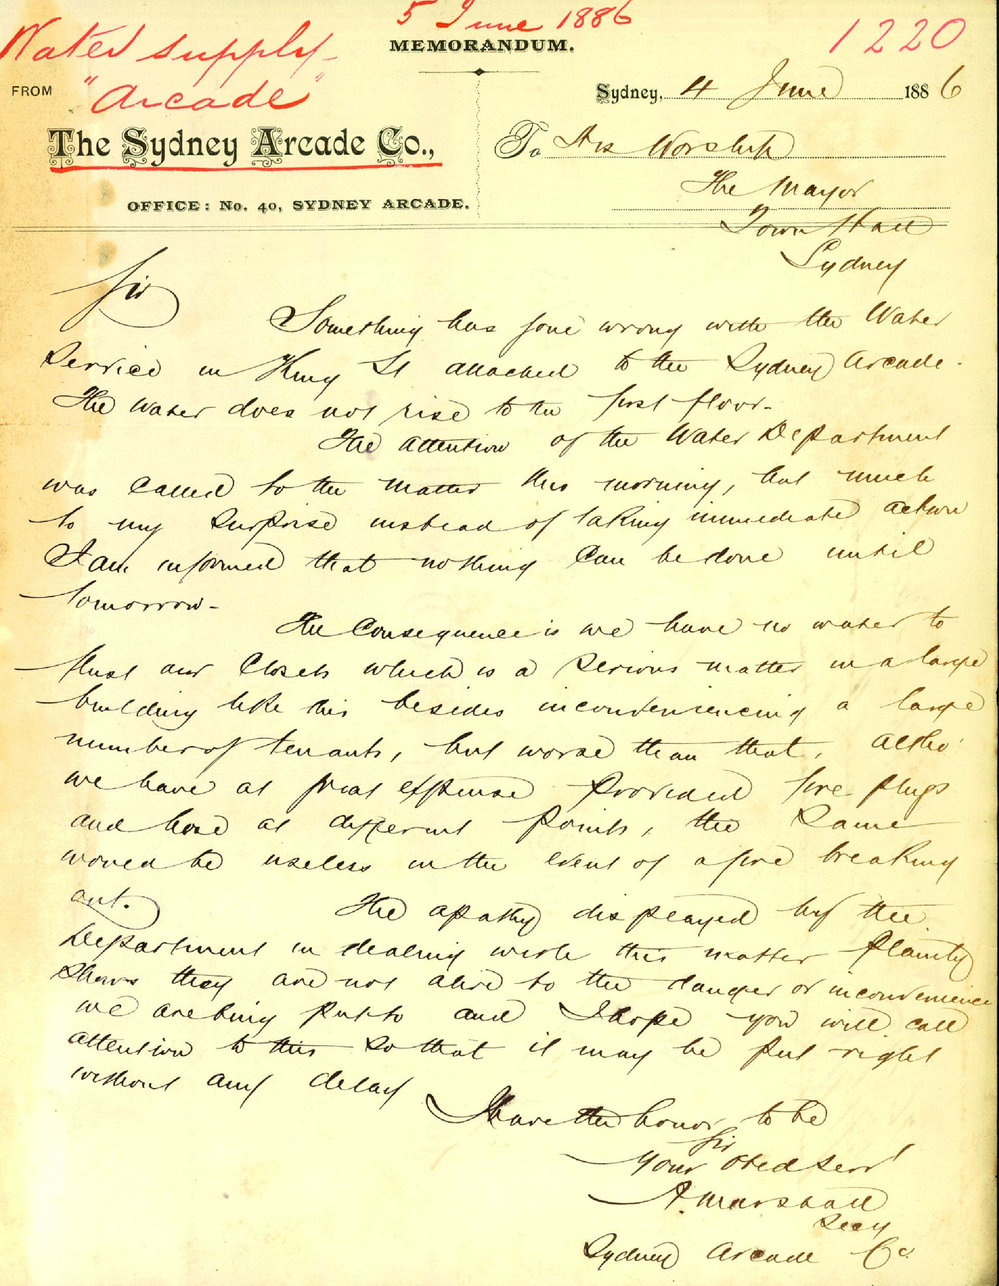 5 June 1886
Water supply -
"Arcade"
1220
MEMORANDUM.
FROM
The Sydney Arcade Co.,
OFFICE: No. 40, SYDNEY ARCADE.
Sydney, 4 June 1886
To His Worship
The Mayor
Town Hall
Sydney
Sir
Something has gone wrong with the Water
Service in King St attached to the Sydney Arcade.
The Water does not rise to the first floor.
The attention of the Water Department
was called to the matter this morning, but much
to my surprise instead of taking immediate action
I am informed that nothing can be done until
tomorrow -
The Consequence is we have no water to
flush our Closets which is a serious matter in a large
building like this besides inconveniencing a large
number of tenants, but worse than that, altho'
we have at great expense provided fire plugs
and hose at different points, the same
would be useless in the event of a fire breaking
out. The apathy displayed by the
Department in dealing with this matter plainly
shows they are not alive to the danger or inconvenience
we are being put to and I hope you will call
attention to this so that it may be put right
without any delay
I have the honor to be
Sir
Your Obed Serv'
A. Marshall
Secy
Sydney Arcade Co.